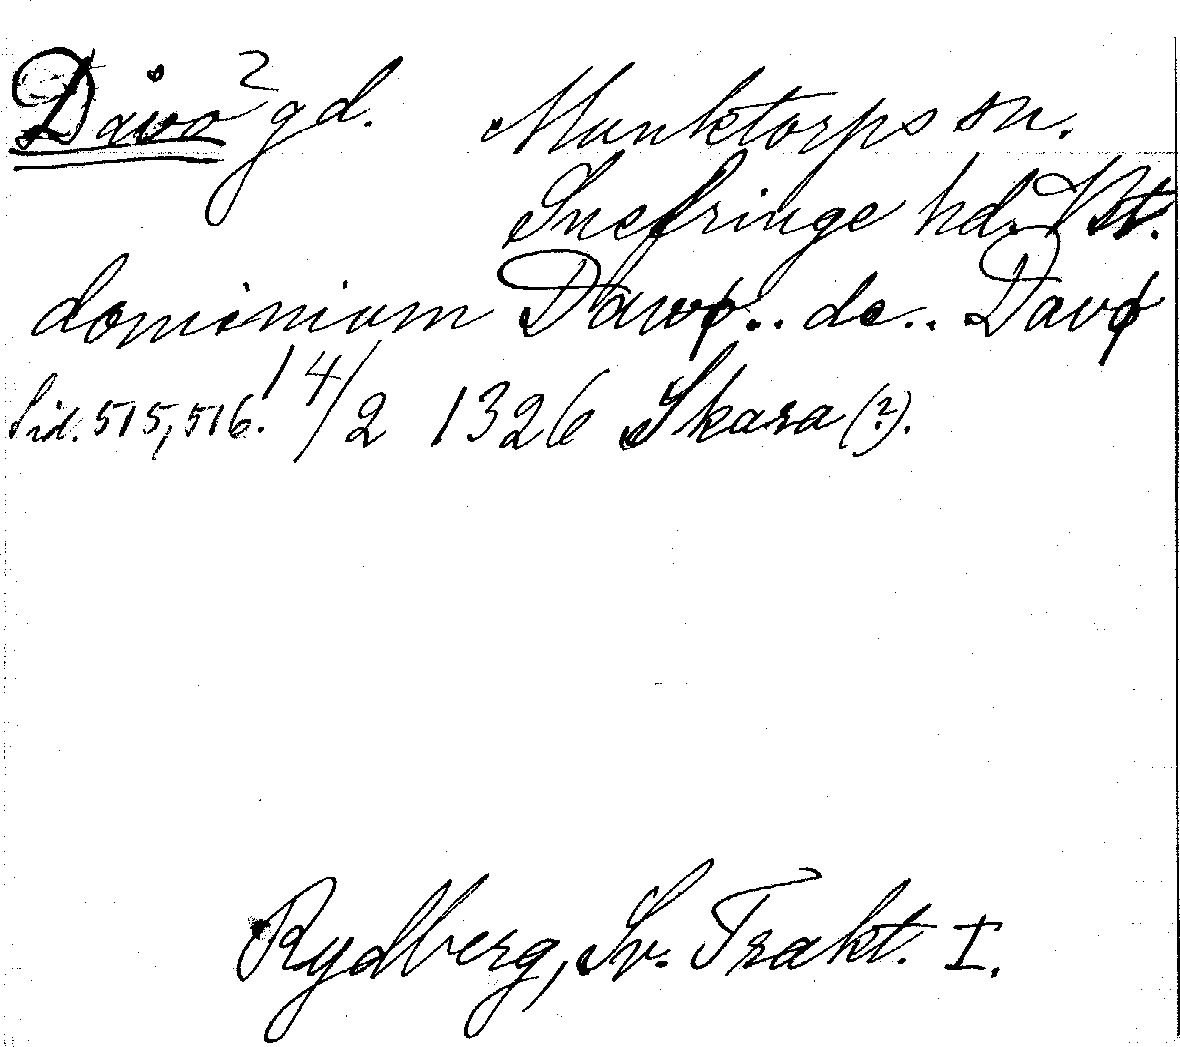 Dåvö 2 gd. Munktorps sn.
Snefringe hd. Vst.
dominium Dawø.. de.. Davø
Sid. 515, 516. 14/2 1326 Skara (?).
Rydberg, Sv. Trakt. I.